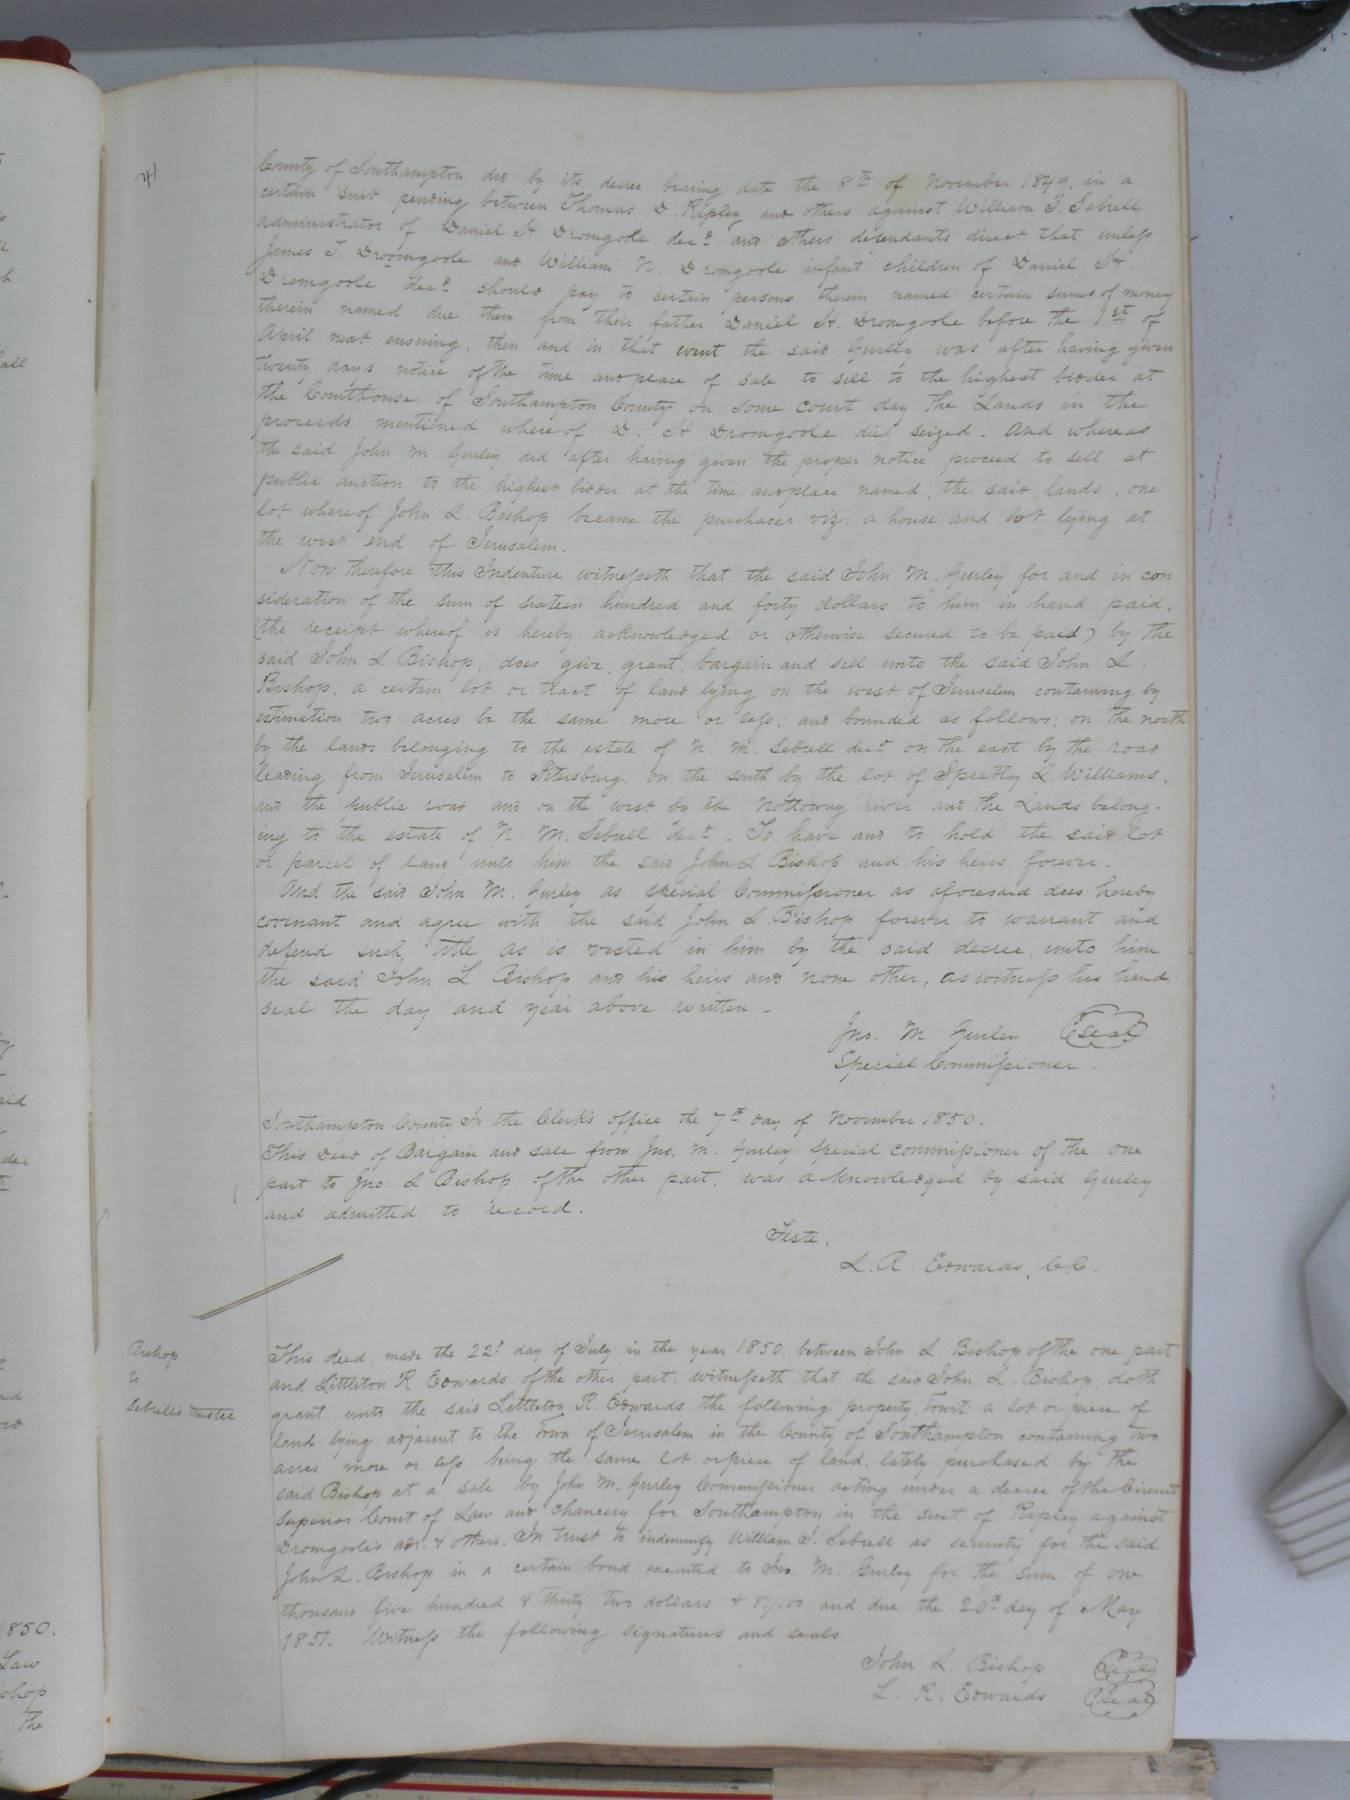 41
County of Southampton did by its decree bearing date the 8th of November 1849, in a
certain suit pending between Thomas D. Ripley and others against William J. Sebrell
administrator of Daniel H Dromgoole decd and others defendants direct that unless
James T. Dromgoole and William N. Dromgoole infant children of Daniel H
Dromgoole decd should pay to certain persons therein named certain sums of money
therein named due them from their father Daniel H. Dromgoole before the 1st of
April next ensuing, then and in that event the said Gurley was after having given
twenty days notice of the time and place of sale to sell to the highest bidder at
the Courthouse of Southampton County on some court day the Lands in the
proceeds mentioned where of D. H Dromgoole died seized. And whereas
the said John M Gurley did after having given the proper notice proceed to sell at
public auction to the highest bidder at the time and place named, the said lands, one
lot whereof John L. Bishop became the purchaser viz: a house and lot lying at
the west end of Jerusalem.
Now therefore this Indenture witnesseth that the said John M. Gurley for and in con
sideration of the sum of sixteen hundred and forty dollars to him in hand paid,
(the receipt whereof is hereby acknowledged or otherwise secured to be paid) by the
said John L Bishop, does give, grant, bargain and sell unto the said John L.
Bishop, a certain lot or tract of land lying on the west of Jerusalem containing by
estimation two acres be the same more or less, and bounded as follows; on the north
by the lands belonging to the estate of N. M. Sebrell decd on the east by the road
leading from Jerusalem to Petersburg, on the south by the lot of Spratly L. Williams,
and the public road and on the west by the Nottoway river and the Lands belong-
ing to the estate of N. M. Sebrell decd. To have and to hold the said Lot
or parcel of land unto him the said John L Bishop and his heirs forever.
And the said John M. Gurley as special Commissioner as aforesaid does hereby
covenant and agree with the said John L Bishop forever to warrant and
defend such title as is vested in him by the said decree, unto him
the said John L. Bishop and his heirs and none other, as witness his hand
seal the day and year above written.
Jno. M. Gurley (Seal)
Special Commissioner.
Southampton County In the Clerk's office the 7th day of November 1850.
This Deed of Bargain and sale from Jno. M. Gurley Special commissioner of the one
part to Jno. L Bishop of the other part, was acknowledged by said Gurley
and admitted to record.
Teste,
L. R. Edwards, C.C.
Bishop
to
Sebrells trustee
This deed, made the 22d day of July in the year 1850 between John L Bishop of the one part
and Littleton R. Edwards of the other part: witnesseth that the said John L. Bishop, doth
grant unto the said Littleton R. Edwards the following property, Towit a lot or piece of
land lying adjacent to the Town of Jerusalem in the County of Southampton containing two
acres more or less being the same lot or piece of land, lately purchased by the
said Bishop at a sale by John M. Gurley Commissioner acting under a decree of the Circuit
Superior Court of Law and Chancery for Southampton in the suit of Ripley against
Dromgoole's adr. & others. In trust to indemnify William J. Sebrell as security for the said
John L. Bishop in a certain bond executed to Jno. M. Gurley for the sum of one
thousand five hundred & thirty two dollars & 81/100 and due the 20th day of May
1851. Witness the following signatures and seals
John L. Bishop (Seal)
L. R. Edwards (Seal)